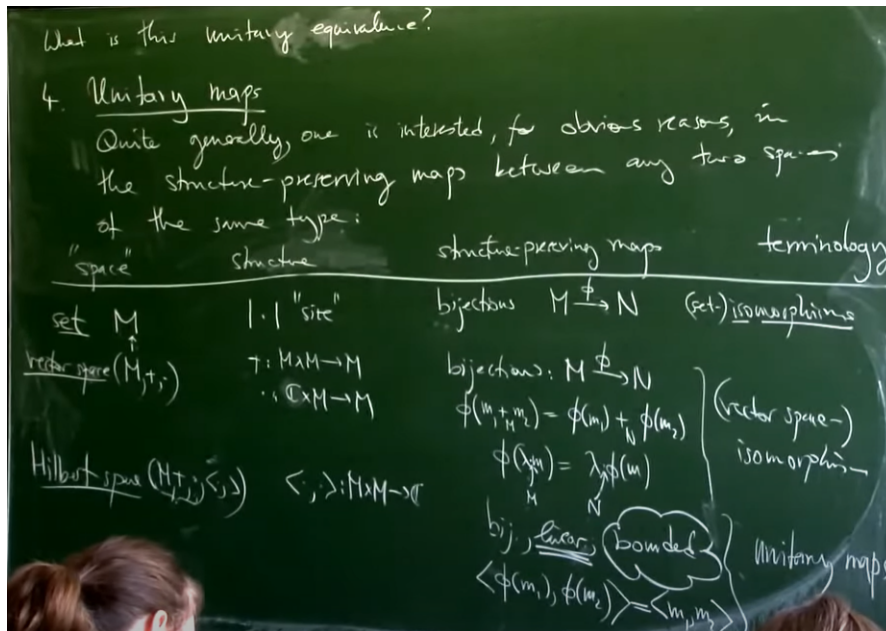 What is this unitary equivalence?
4. Unitary maps
Quite generally, one is interested, for obvious reasons, in
the structure-preserving maps between any two spaces
of the same type:
"space" structure structure-preserving maps terminology
set M |·| "size" bijections M →ϕ N (set-)isomorphisms
vector space (M,+,·) +: M×M→M bijections: M →ϕ N
·: ℂ×M→M ϕ(m₁ +_M m₂) = ϕ(m₁) +_N ϕ(m₂) (vector space-)
ϕ(λ·_M m) = λ·_N ϕ(m) isomorphism
Hilbert space (M,+,·,<·,·>) <·,·>: M×M→ℂ
bij., linear, bounded unitary maps
<ϕ(m₁), ϕ(m₂)> = <m₁, m₂>